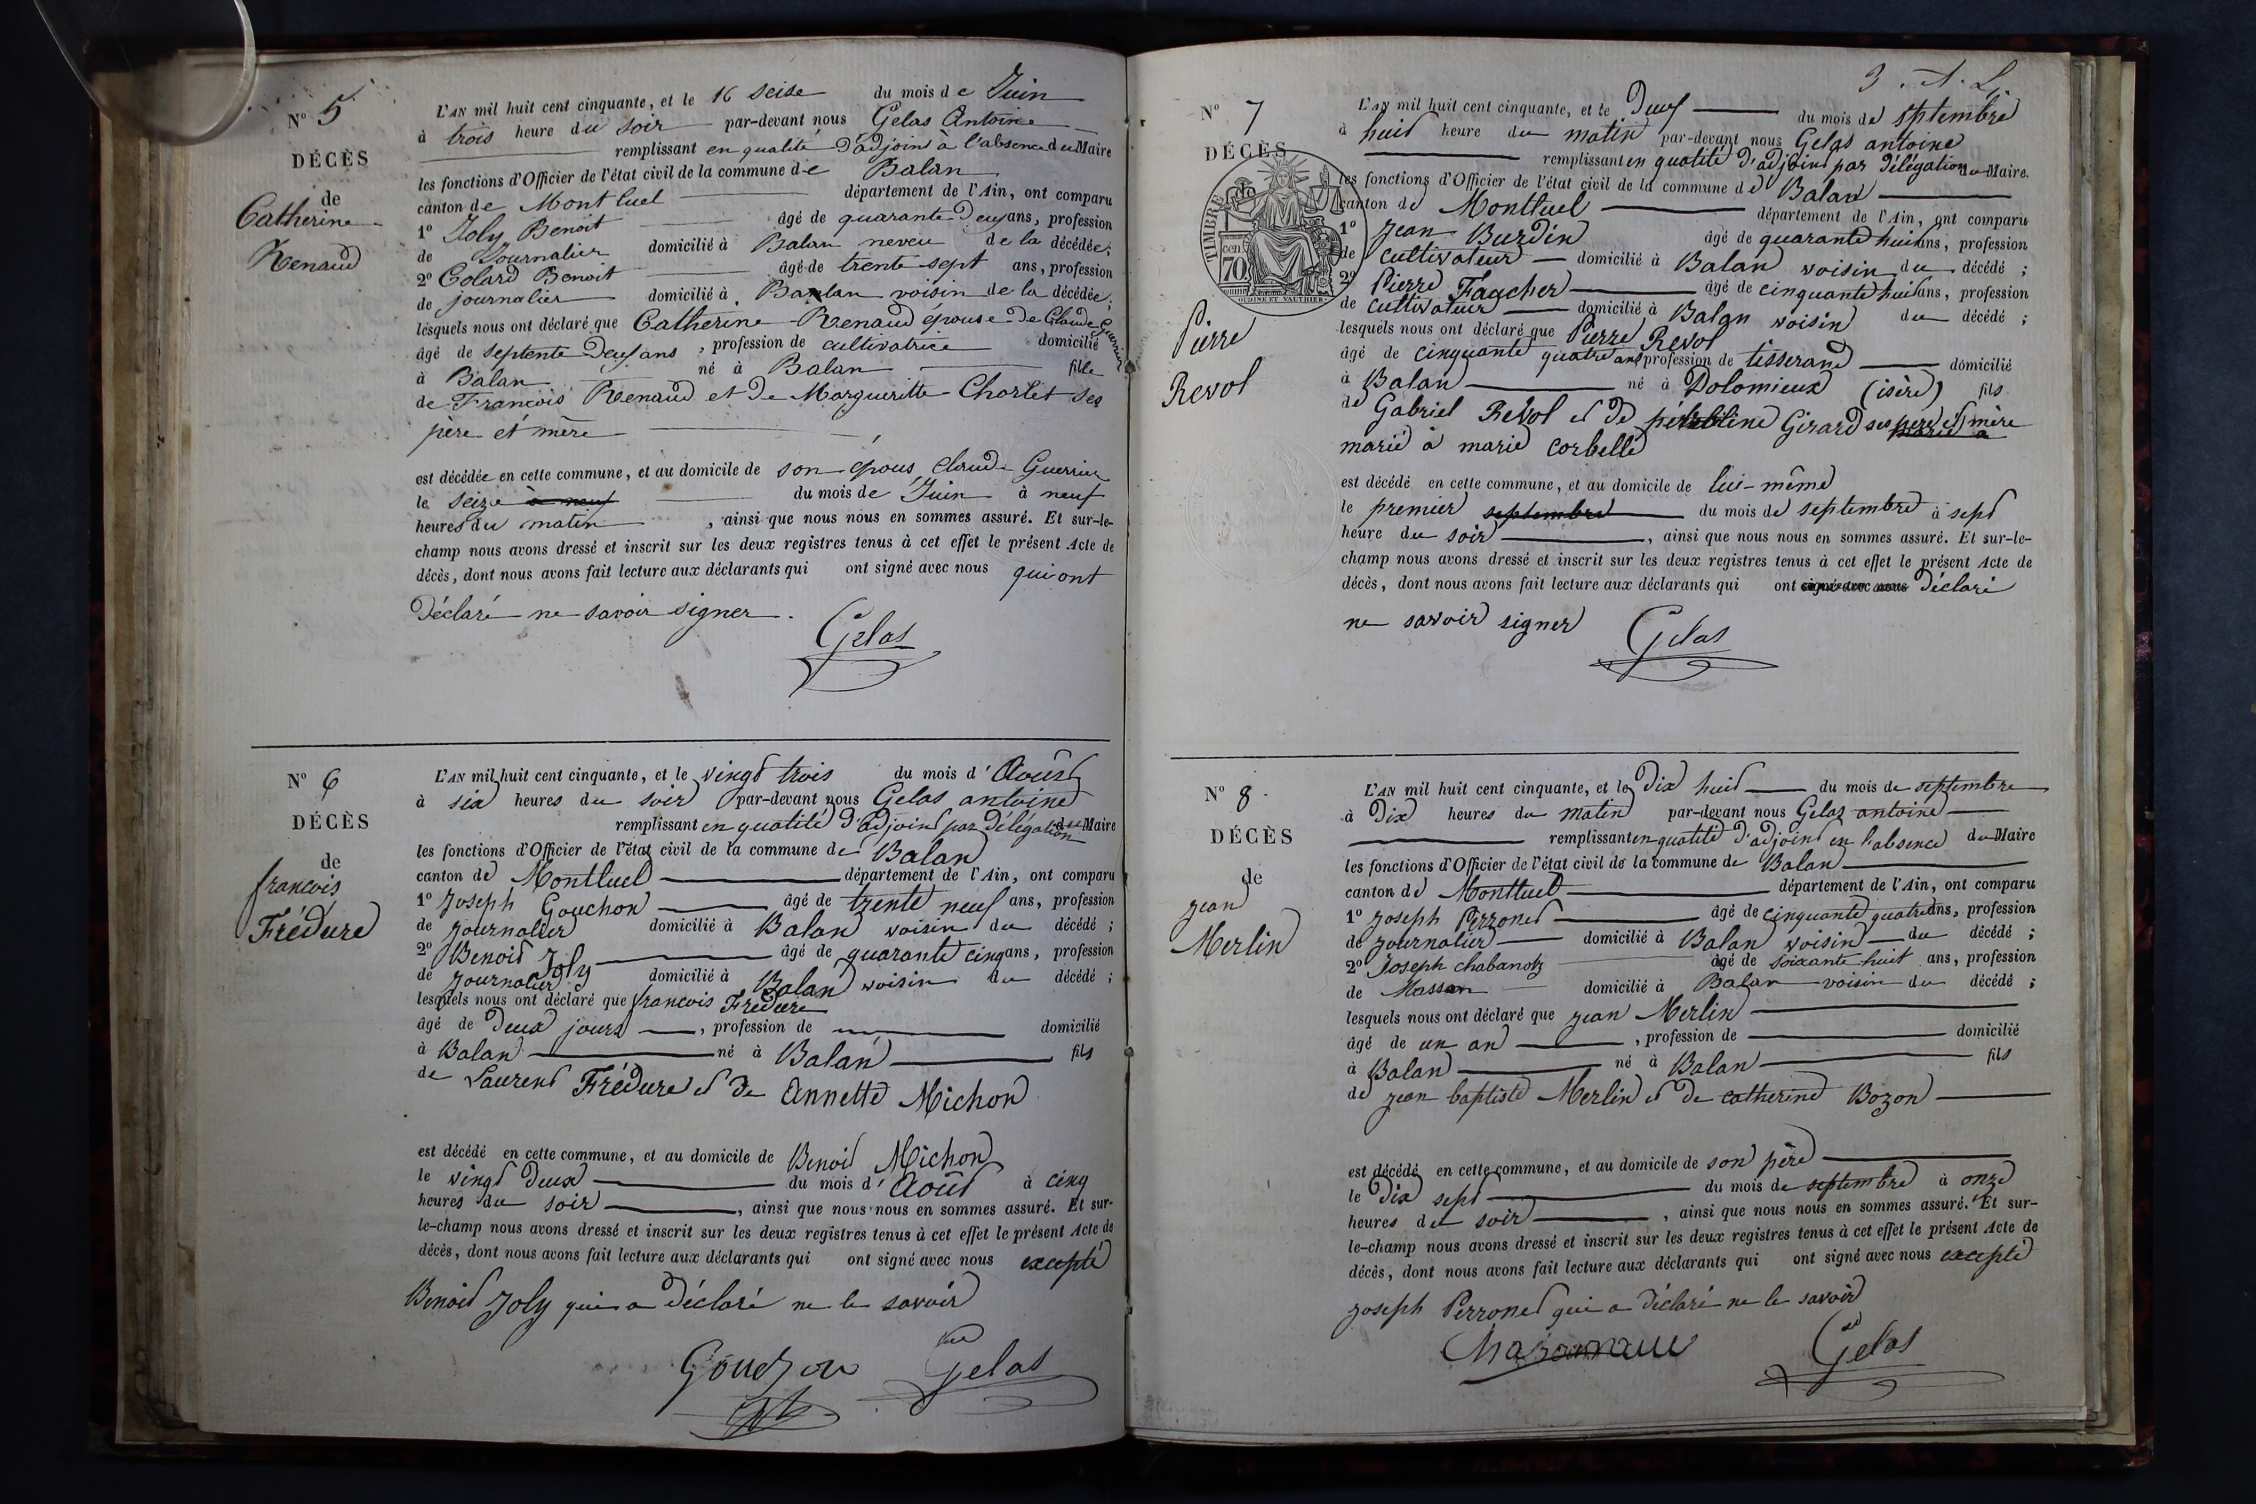 N° 5
DÉCÈS
de
Catherine
Renaud
L'AN mil huit cent cinquante, et le 16 seise du mois de Juin
à trois heure du soir par-devant nous Gelas Antoine
remplissant en qualité d'adjoint à l'absence du Maire
les fonctions d'Officier de l'état civil de la commune de Balan
canton de Montluel département de l'Ain, ont comparu
1° Joly Benoit âgé de quarante deux ans, profession
de Journalier domicilié à Balan neveu de la décédée;
2° Colard Benoit âgé de trente sept ans, profession
de journalier domicilié à Balan voisin de la décédée;
lesquels nous ont déclaré que Catherine Renaud epouse de Claude Guerrier
âgé de septente deux ans, profession de cultivatrice domicilié
à Balan né à Balan fille
de François Renaud et de Margueritte Charlet ses
père et mère
est décédée en cette commune, et au domicile de son épous Claude Guerrier
le seize à neuf du mois de Juin à neuf
heures du matin, ainsi que nous nous en sommes assuré. Et sur-le-
champ nous avons dressé et inscrit sur les deux registres tenus à cet effet le présent Acte de
décès, dont nous avons fait lecture aux déclarants qui ont signé avec nous qui ont
Déclaré ne savoir signer.
Gelas
N° 6
DÉCÈS
de
francois
Frédure
L'AN mil huit cent cinquante, et le vingt trois du mois d'Août
à six heures du soir par-devant nous Gelas antoine
remplissant en qualité d'adjoint par délégation du Maire
les fonctions d'Officier de l'état civil de la commune de Balan
canton de Montluel département de l'Ain, ont comparu
1° Joseph Gouchon âgé de trente neuf ans, profession
de journalier domicilié à Balan voisin du décédé;
2° Benoit Joly âgé de quarante cinq ans, profession
de journalier domicilié à Balan voisin du décédé;
lesquels nous ont déclaré que francois Frédure
âgé de deux jours, profession de domicilié
à Balan né à Balan fils
de Laurent Frédure et de Annette Michon
est décédé en cette commune, et au domicile de Benoit Michon
le vingt deux du mois d'Août à cinq
heures du soir, ainsi que nous nous en sommes assuré. Et sur-
le-champ nous avons dressé et inscrit sur les deux registres tenus à cet effet le présent Acte de
décès, dont nous avons fait lecture aux déclarants qui ont signé avec nous excepté
Benoit Joly qui a déclaré ne le savoir
Gouchon Gelas
N° 7
DÉCÈS
TIMBRE
70
OUDINE ET VAUTHIER
Pierre
Revol
L'AN mil huit cent cinquante, et le Deux du mois de septembre
à huit heure du matin par-devant nous Gelas antoine
remplissant en qualité d'adjoint par délégation du Maire.
les fonctions d'Officier de l'état civil de la commune de Balan
canton de Montluel département de l'Ain, ont comparu
1° Jean Burdin âgé de quarante huit ans, profession
de cultivateur domicilié à Balan voisin du décédé;
2° Pierre Faucher âgé de cinquante huit ans, profession
de cultivateur domicilié à Balan voisin du décédé;
lesquels nous ont déclaré que Pierre Revol
âgé de cinquante quatre ans profession de tisserand domicilié
à Balan né à Dolomieux (isère) fils
de Gabriel Revol et de Girard ses père et mère
marié à marie corbelle
est décédé en cette commune, et au domicile de lui-même
le premier septembre du mois de septembre à sept
heure du soir, ainsi que nous nous en sommes assuré. Et sur-le-
champ nous avons dressé et inscrit sur les deux registres tenus à cet effet le présent Acte de
décès, dont nous avons fait lecture aux déclarants qui ont signé avec nous Déclaré
ne savoir signer
Gelas
N° 8
DÉCÈS
de
jean
Merlin
L'AN mil huit cent cinquante, et le dix huit du mois de septembre
à Dix heures du matin par-devant nous Gelas antoine
remplissant en qualité d'adjoint en l'absence du Maire
les fonctions d'Officier de l'état civil de la commune de Balan
canton de Montluel département de l'Ain, ont comparu
1° joseph Perronet âgé de cinquante quatre ans, profession
de journalier domicilié à Balan voisin du décédé;
2° Joseph chabanotz âgé de soixante huit ans, profession
de Masson domicilié à Balan voisin du décédé;
lesquels nous ont déclaré que jean Merlin
âgé de un an, profession de domicilié
à Balan né à Balan fils
de jean baptiste Merlin et de catherine Bozon
est décédé en cette commune, et au domicile de son père
le dix sept du mois de septembre à onze
heures du soir, ainsi que nous nous en sommes assuré. Et sur-
le-champ nous avons dressé et inscrit sur les deux registres tenus à cet effet le présent Acte de
décès, dont nous avons fait lecture aux déclarants qui ont signé avec nous excepté
joseph Perronet qui a déclaré ne le savoir
Gelas